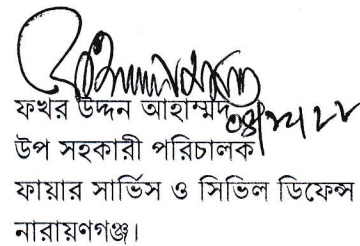 ফখর উদ্দন আহাম্মদ
উপ সহকারী পরিচালক
ফায়ার সার্ভিস ও সিভিল ডিফেন্স
নারায়ণগঞ্জ।